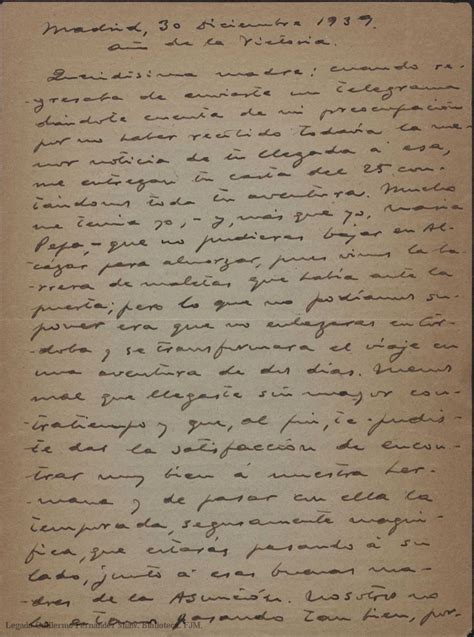 Madrid, 30 Diciembre 1939.
año de la Victoria.
Queridísima madre: cuando re-
gresaba de enviarte un telegrama
dándote cuenta de mi preocupación
por no haber recibido todavía la me-
nor noticia de tu llegada á esa,
me entregan tu carta del 25 con-
tándonos toda tu aventura. Mucho
me temía yo, - y, más que yo, María
Pepa, - que no pudieras bajar en Al-
cázar para almorzar, pues vimos la ba-
rrera de maletas que había ante la
puerta; pero lo que no podíamos su-
poner era que no enlazaras en Cór-
doba y se transformara el viaje en
una aventura de dos días. Menos
mal que llegaste sin mayor con-
tratiempo y que, al fin, te pudis-
te dar la satisfacción de encon-
trar muy bien á nuestra her-
mana y de pasar con ella la
temporada, seguramente magní-
fica, que estarás pasando á su
lado, junto á esas buenas ma-
dres de la Asunción. Nosotros no
la estamos pasando tan bien, por-
Legado Guillermo Fernández Shaw. Biblioteca. FJM.